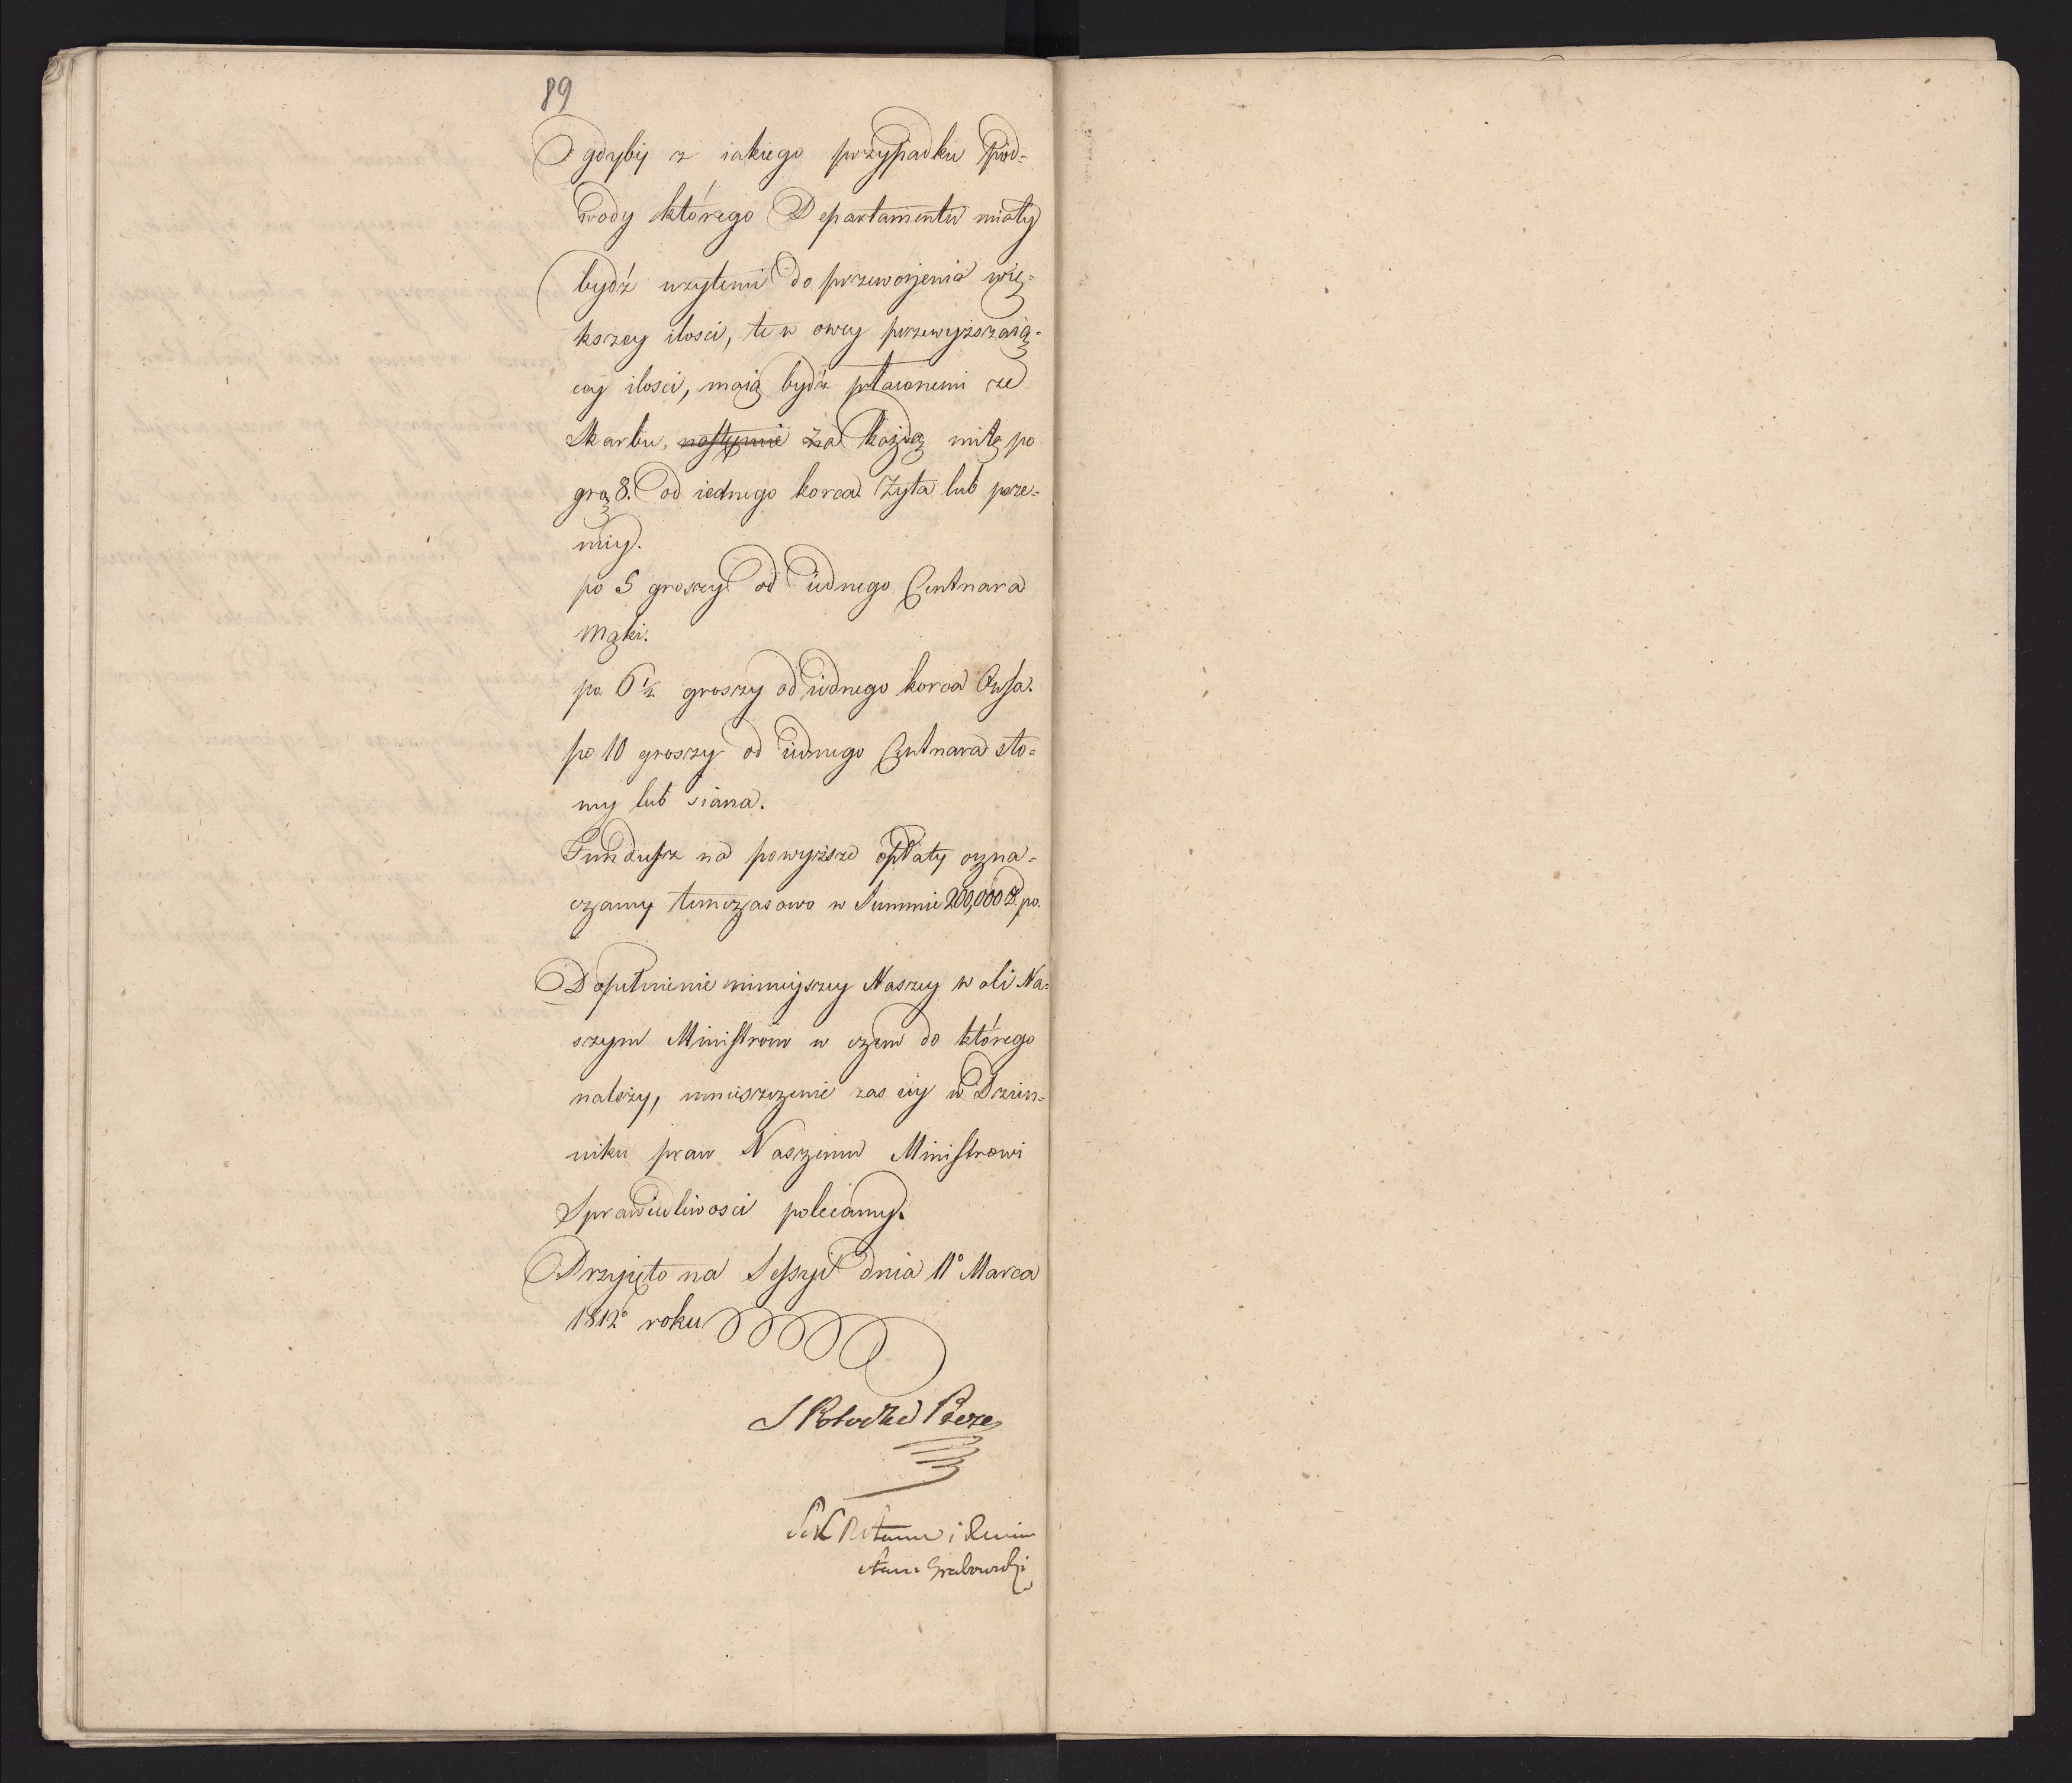 89
Gdyby z iakiego przypadku Pod=
wody którego Departamentu miały
bydź użytemi do przewożenia wię=
kszey ilosci, te w owey przewyższaią=
cey ilosci, maią bydź płaconemi ze
Skarbu, następnie za każdą milę po
gro 8. od iednego korca żyta lub psze=
nicy.
po 5 groszy od iednego Centnara
Mąki.
po 6 1/2 groszy od iednego korca Owsa.
po 10 groszy od iednego Centnara sło=
my lub siana.
Fundusz na powyższe opłaty ozna=
czamy tymczasowo w Summie 200,000 Zł. po.
Dopełnienie ninieyszey Naszey woli Na=
szym Ministrom w czem do którego
należy, umieszczenie zas iey w Dzien=
niku praw Naszemu Ministrowi
Sprawiedliwosci polecamy.
Przyięto na Sessyi dnia 11° Marca
1812° roku
S Potocki Preze
Sek Rady Stanu i Mini
Stani Grabowski